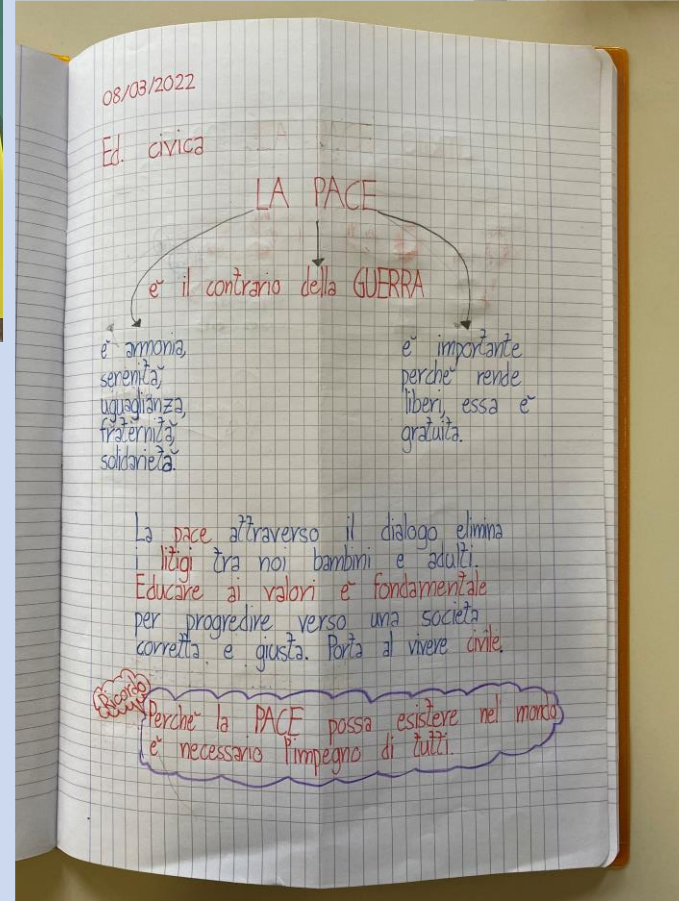 08/03/2022
Ed. civica
LA PACE
è il contrario della GUERRA
è armonia,
serenità,
uguaglianza,
fraternità,
solidarietà.
è importante
perchè rende
liberi, essa è
gratuita.
La pace attraverso il dialogo elimina
i litigi tra noi bambini e adulti.
Educare ai valori è fondamentale
per progredire verso una società
corretta e giusta. Porta al vivere civile.
Ricordo
Perchè la PACE possa esistere nel mondo
è necessario l'impegno di tutti.